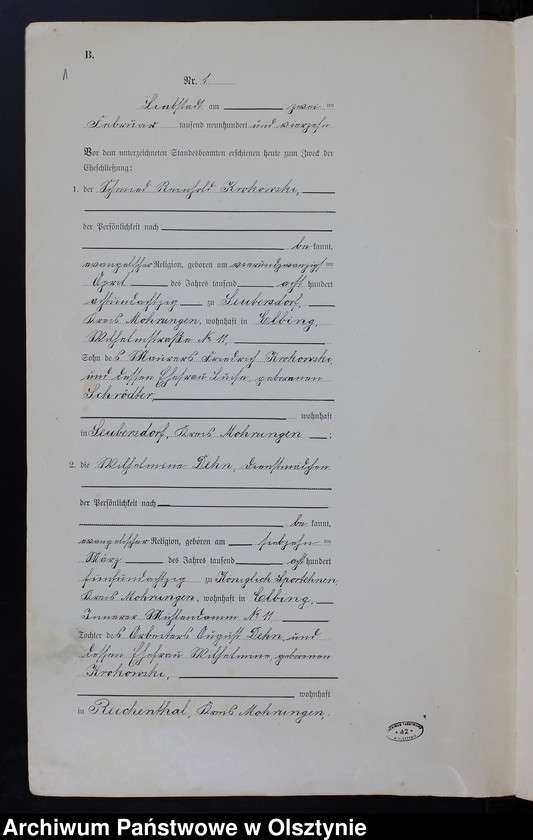 B.
Nr. 1
Liebstadt am zwei ten
Februar tausend neunhundert und vierzehn
Vor dem unterzeichneten Standesbeamten erschienen heute zum Zweck der
Eheschließung:
1. der Schmied Reinhold Krokowski,
der Persönlichkeit nach
be kannt,
evangelischer Religion, geboren am vierundzwanzigsten
April des Jahres tausend acht hundert
achtundachtzig zu Leubersdorf,
Kreis Mohrungen, wohnhaft in Elbing,
Wilhelmstraße No 11,
Sohn des Maurers Friedrich Krokowski
und dessen Ehefrau Luise geborenen
Schrödter,
wohnhaft
in Leubersdorf, Kreis Mohrungen ;
2. die Wilhelmine Dehn, Dienstmädchen
der Persönlichkeit nach
be kannt,
evangelischer Religion, geboren am siebzehn ten
März des Jahres tausend acht hundert
fünfundachtzig zu Königlich Sportehnen,
Kreis Mohrungen, wohnhaft in Elbing,
Innerer Mühlendamm No 11
Tochter des Arbeiters August Dehn, und
dessen Ehefrau Wilhelmine, geborenen
Krokowski,
wohnhaft
in Reichenthal, Kreis Mohrungen,
42
Archiwum Państwowe w Olsztynie